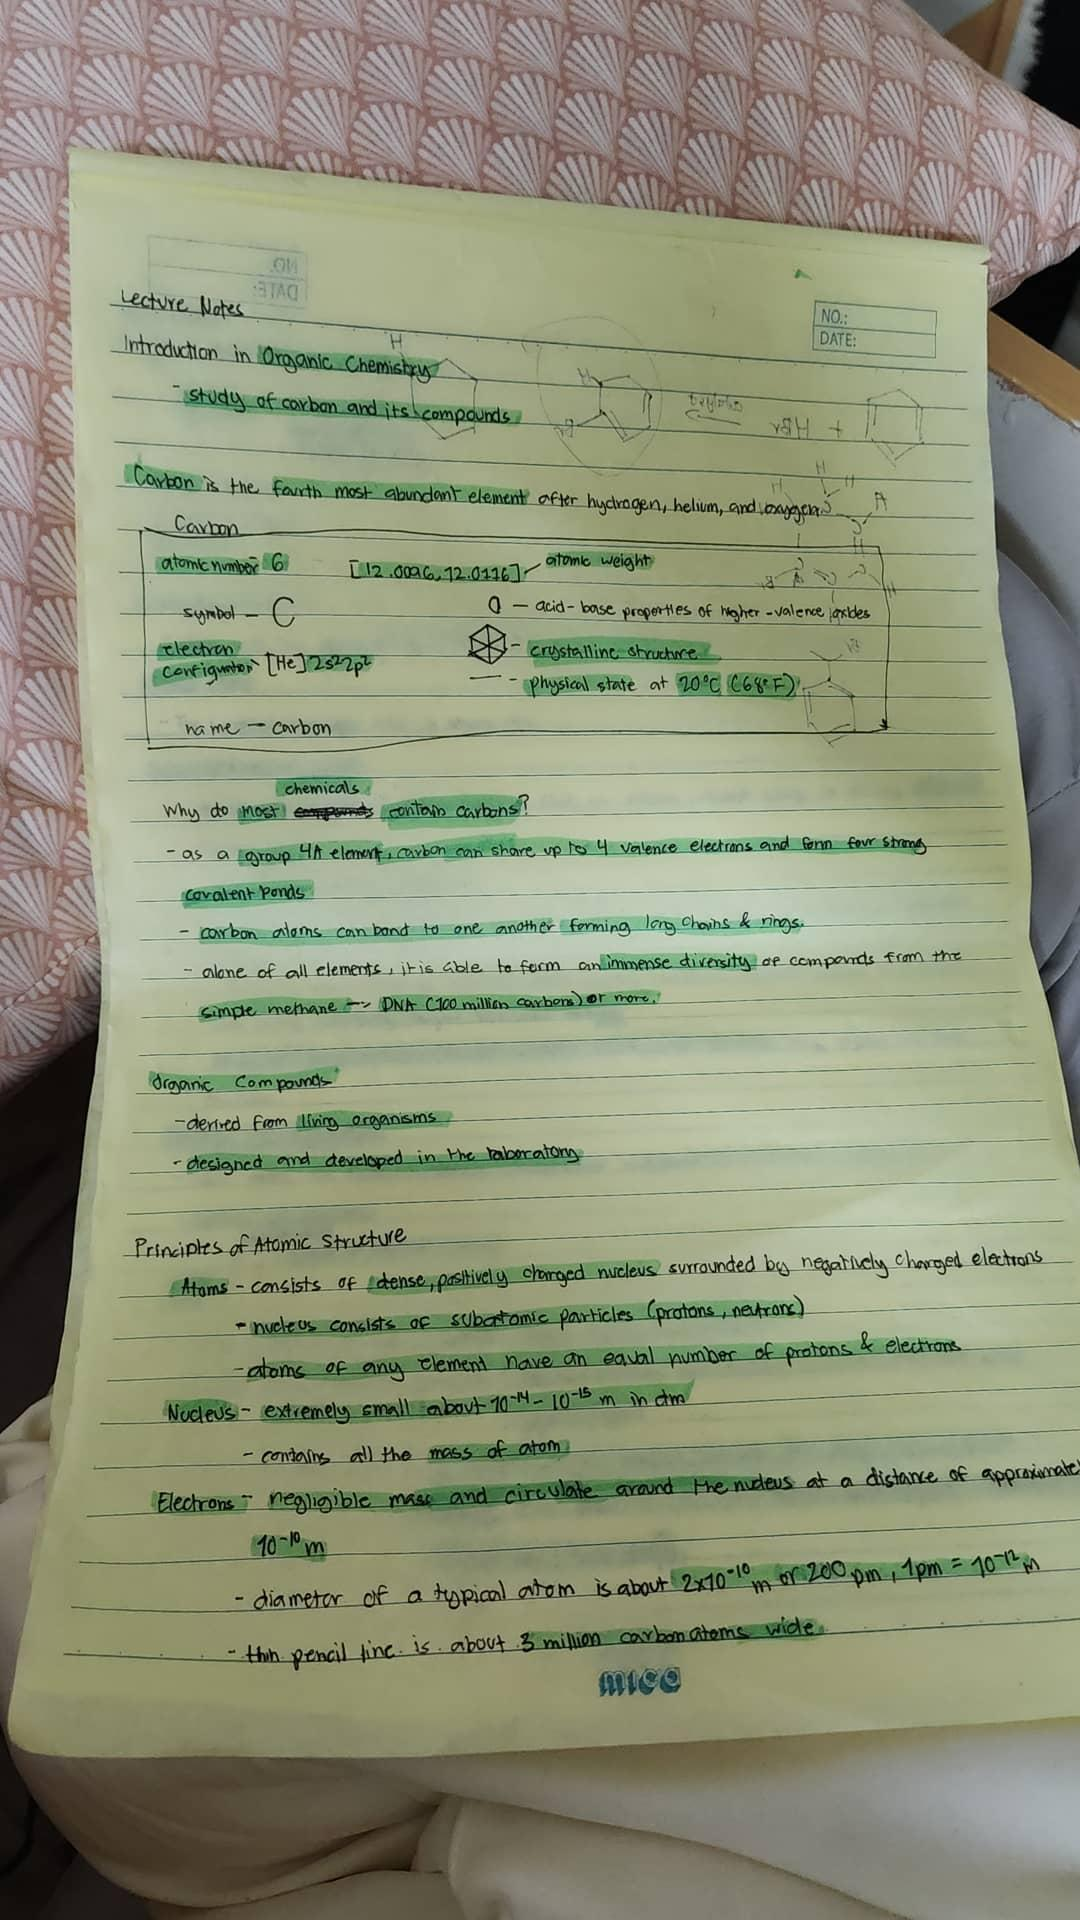 Lecture Notes
NO.:
DATE:
Introduction in Organic Chemistry
- study of carbon and its compounds
Carbon is the fourth most abundant element after hydrogen, helium, and oxygen
Carbon
atomic number 6 [12.0096, 12.0116] - atomic weight
symbol - C - acid-base properties of higher-valence oxides
electron
configuration [He]2s²2p² - crystalline structure
— - physical state at 20°C (68°F)
name - carbon
chemicals
Why do most compounds contain carbons?
- as a group 4A element, carbon can share up to 4 valence electrons and form four strong
covalent bonds
- carbon atoms can bond to one another forming long chains & rings.
- alone of all elements, it is able to form an immense diversity of compounds from the
simple methane --> DNA (100 million carbons) or more.
Organic Compounds
- derived from living organisms
- designed and developed in the laboratory
Principles of Atomic Structure
Atoms - consists of dense, positively charged nucleus surrounded by negatively charged electrons
- nucleus consists of subatomic particles (protons, neutrons)
- atoms of any element have an equal number of protons & electrons
Nucleus - extremely small about 10⁻¹⁴ - 10⁻¹⁵ m in dm
- contains all the mass of atom
Electrons - negligible mass and circulate around the nucleus at a distance of approximate
10⁻¹⁰ m
- diameter of a typical atom is about 2x10⁻¹⁰ m or 200 pm, 1pm = 10⁻¹² m
- thin pencil line is about 3 million carbon atoms wide.
mico